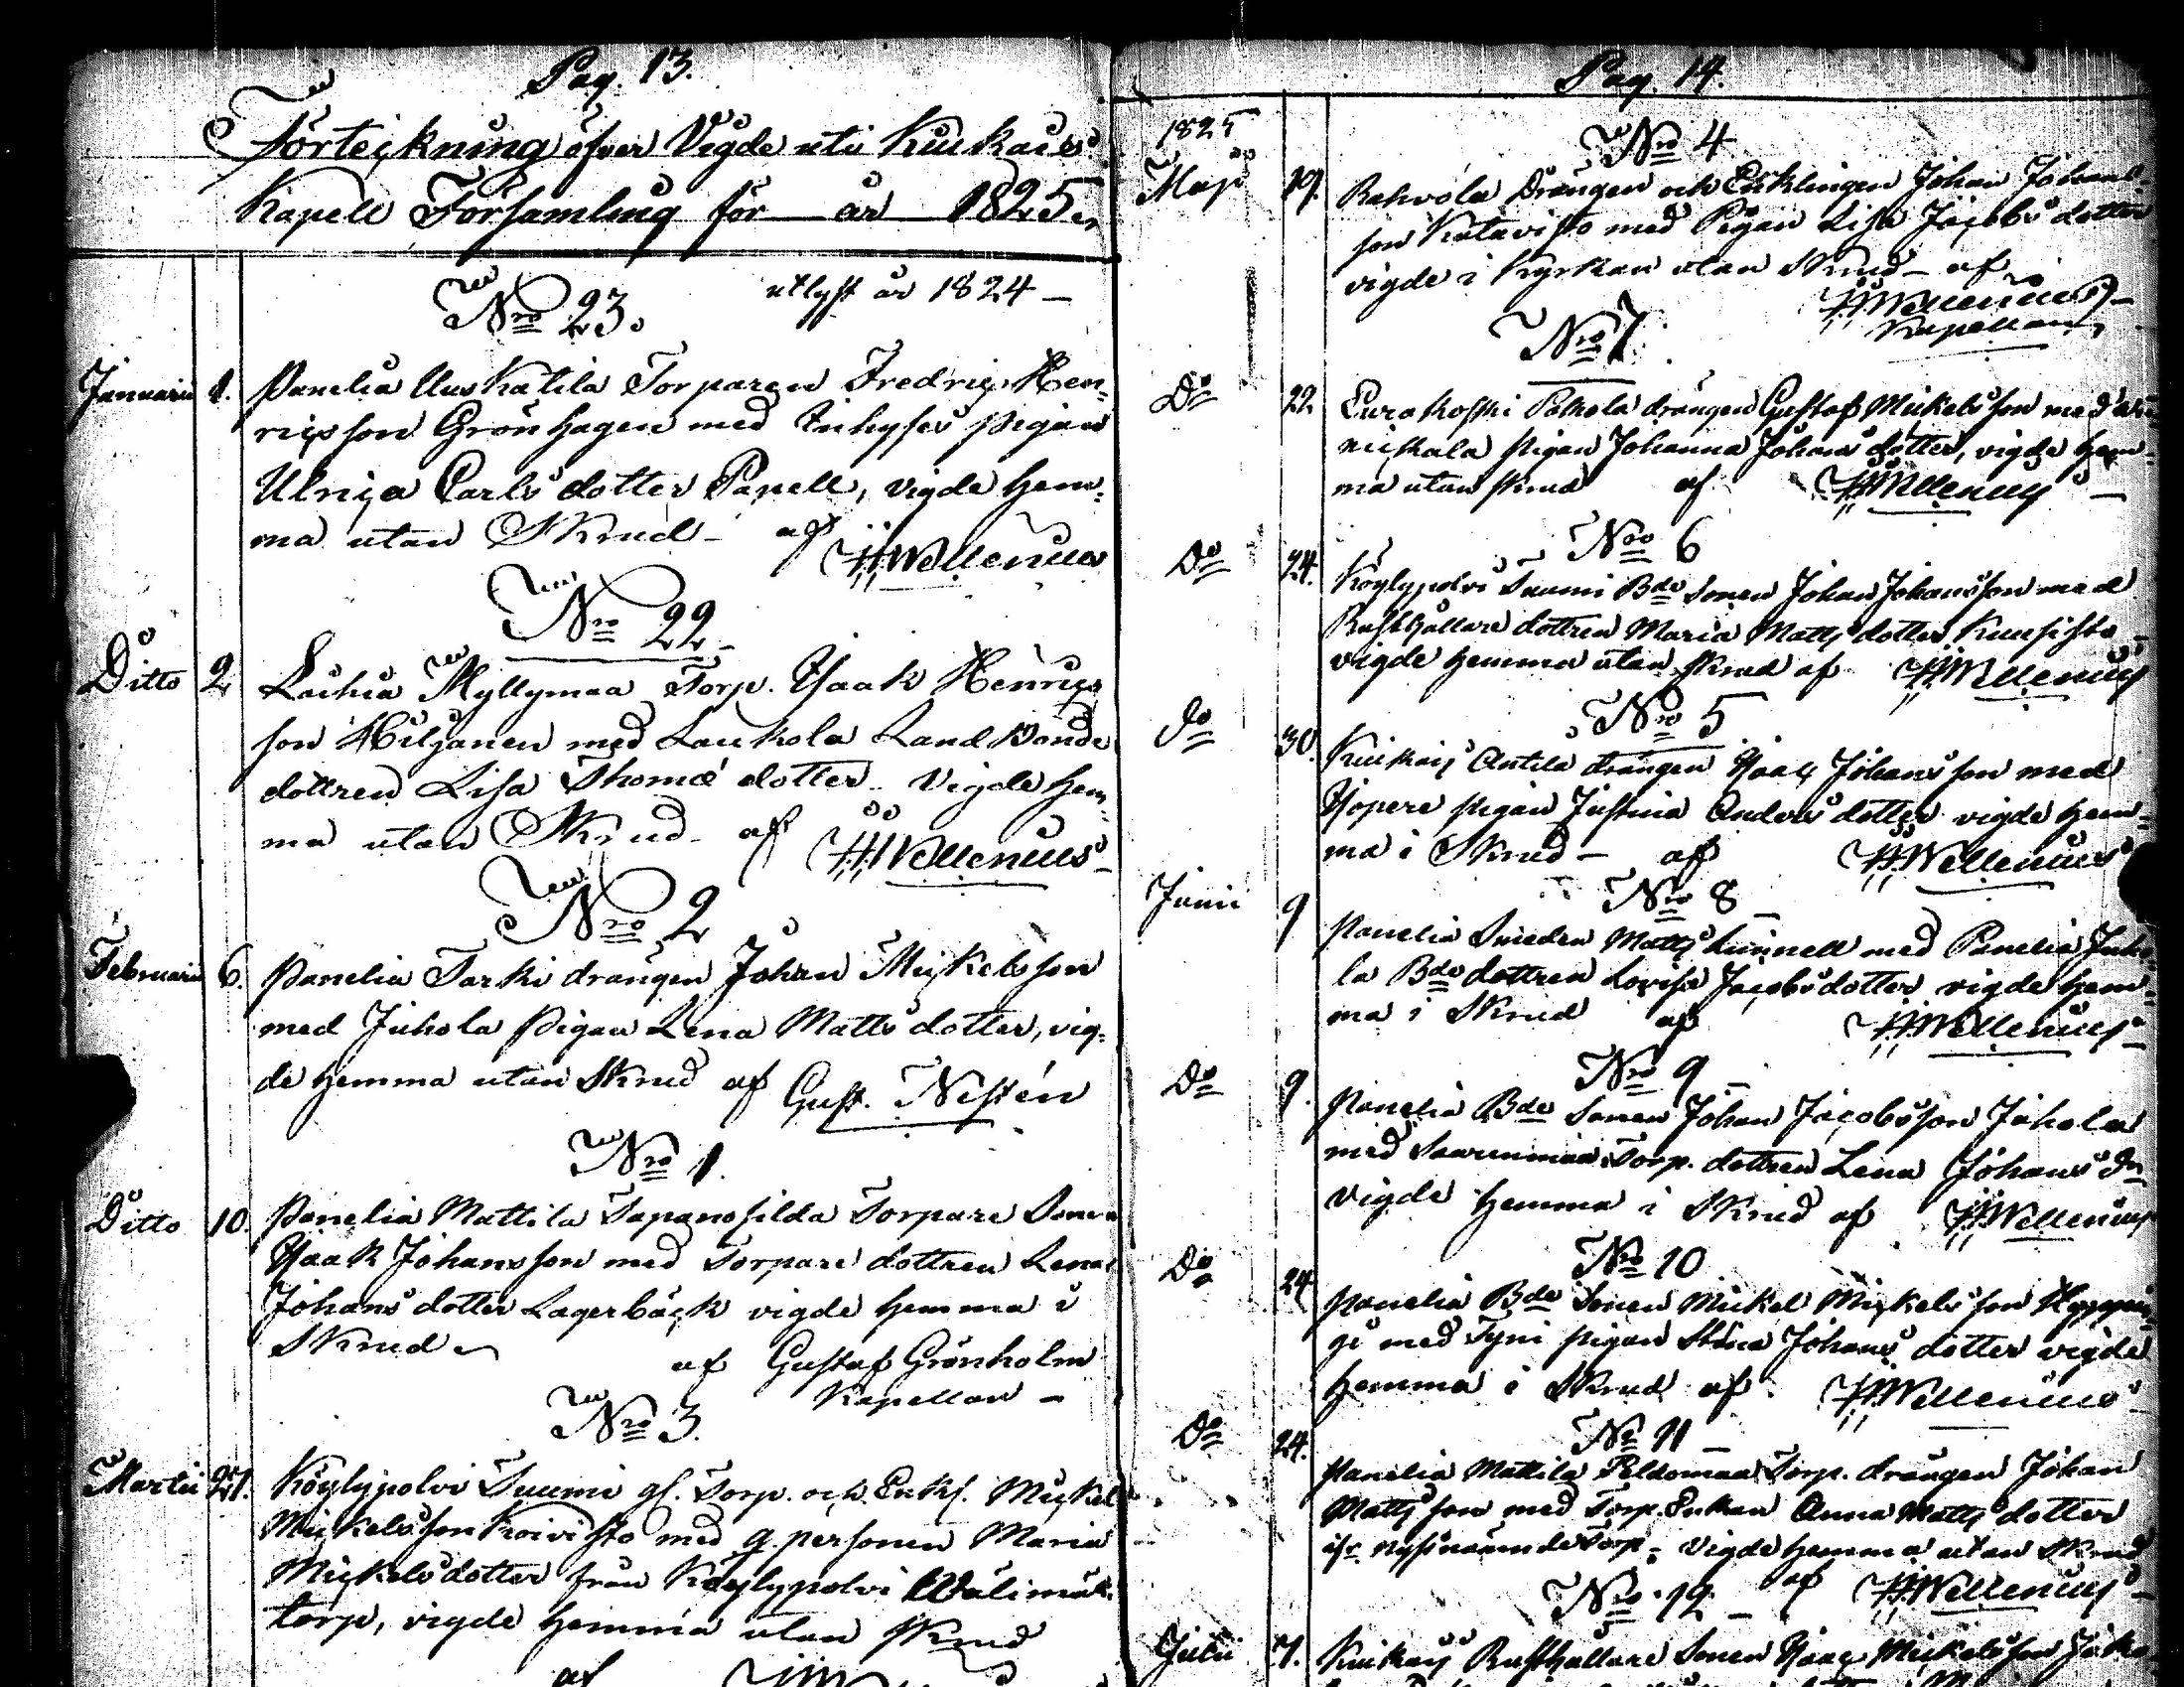 Pag. 13.
Förteckning öfver Vigde uti Kiukais
Kapell Församling för år 1825.
No 23. utlyst år 1824 —
Januarii 1. Panelia Uus Katila Torparen Fredric Hen-
ricsson Grönhagen med Inhyses pigan
Ulrica Carls dotter Papell, vigde hem-
ma utan Skrud — af
HWellenius
No 22
Ditto 2 Laihia Myllymaa Torp. Isaak Henrics
son Hiljanen med Laukola Land Bonde
dottren Lisa Thomæ dotter vigde hem-
ma utan Skrud — af HWellenius
No 2
Februarii 6. Panelia Tarki drängen Johan Mickelsson
med Juhola Pigan Lena Matts dotter, vig-
de hemma utan Skrud af Gust. Nestén
No 1.
Ditto 10. Panelia Mattila Tapanosilda Torpare Sonen
Isaak Johansson med Torpare dottren Lena
Johans dotter Lagerbäck vigde hemma i
Skrud
af Gustaf Grönholm
Kapellan —
No 3.
Martii 27. Köylypolvi Suumi gl. Torp. och Enkl. Mickel
Mickelsson Koivisto med q. personen Maria
Mickels dotter från Köylypolvi Wälimäk
torp, vigde hemma utan Skrud
af
Pag. 14.
1825
No 4
Maji 19. Rahvola Drängen och Enklingen Johan Johans-
son Katavisto med Pigan Lisa Jacobs dotter
vigde i Kyrkan utan Skrud — af
HWellenius
Kapellan
No 7.
Do 22 Eurakoski Pohola drängen Gustaf Mickelsson med
pigan Johanna Johans dotter, vigde hem-
ma utan skrud af HWellenius —
No 6
Do 24. Köylypolvi Suumi Bde Sonen Johan Johansson med
Rusthållare dottren Maria Matts dotter Kuusisto
vigde hemma utan skrud af HWellenius
No 5
Do 30. Kiukais Antila drängen Isaac Johansson med
pigan Justina Anders dotter vigde hem-
ma i Skrud — af HWellenius
No 8
Junii 9 Panelia Smeden Matts Lunnell med Panelia Juho-
la Bde dottren Lovisa Jacobsdotter vigde hem-
ma i Skrud af HWellenius
No 9
Do 9. Panelia Bde Sonen Johan Jacobsson Juhola
med Saarenmaa Torp. dottren Lena Johans Dr
vigde hemma i Skrud af HWellenius
No 10
Do 24 Panelia Bde Sonen Mickel Mickelsson
med Tyni pigan Stina Johans dotter vigde
hemma i Skrud af HWellenius
No 11
Do 24. Panelia Mattila Peldomaa Torp. drängen Johan
Matts son med Torp. Enkan Anna Matts dotter
ifr nyssnämnde Torp. vigde hemma utan Skrud
af HWellenius
No 12
Julii 7. Kiukais Rusthållare Sonen Isaac Mickelsson